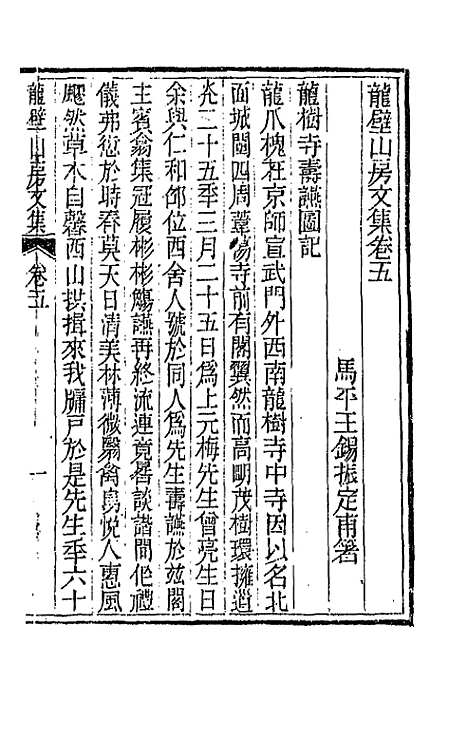 龍壁山房文集卷五
馬平王錫振定甫著
龍樹寺壽讌圖記
龍爪槐在京師宣武門外西南龍樹寺中寺因以名北
面城闉四周葦蕩寺前有閣翼然而高明茂樹環擁道
光二十五年三月二十五日爲上元梅先生曾亮生日
余與仁和邵位西舍人號於同人爲先生壽讌於茲閣
主賓翕集冠履彬彬觴讌再終流連竟晷談諧間作禮
儀弗愆於時春莫天日清美林薄微翳禽鳥悅人惠風
飂然草木自馨西山拱揖來我牖戶於是先生年六十
龍壁山房文集
卷五
一